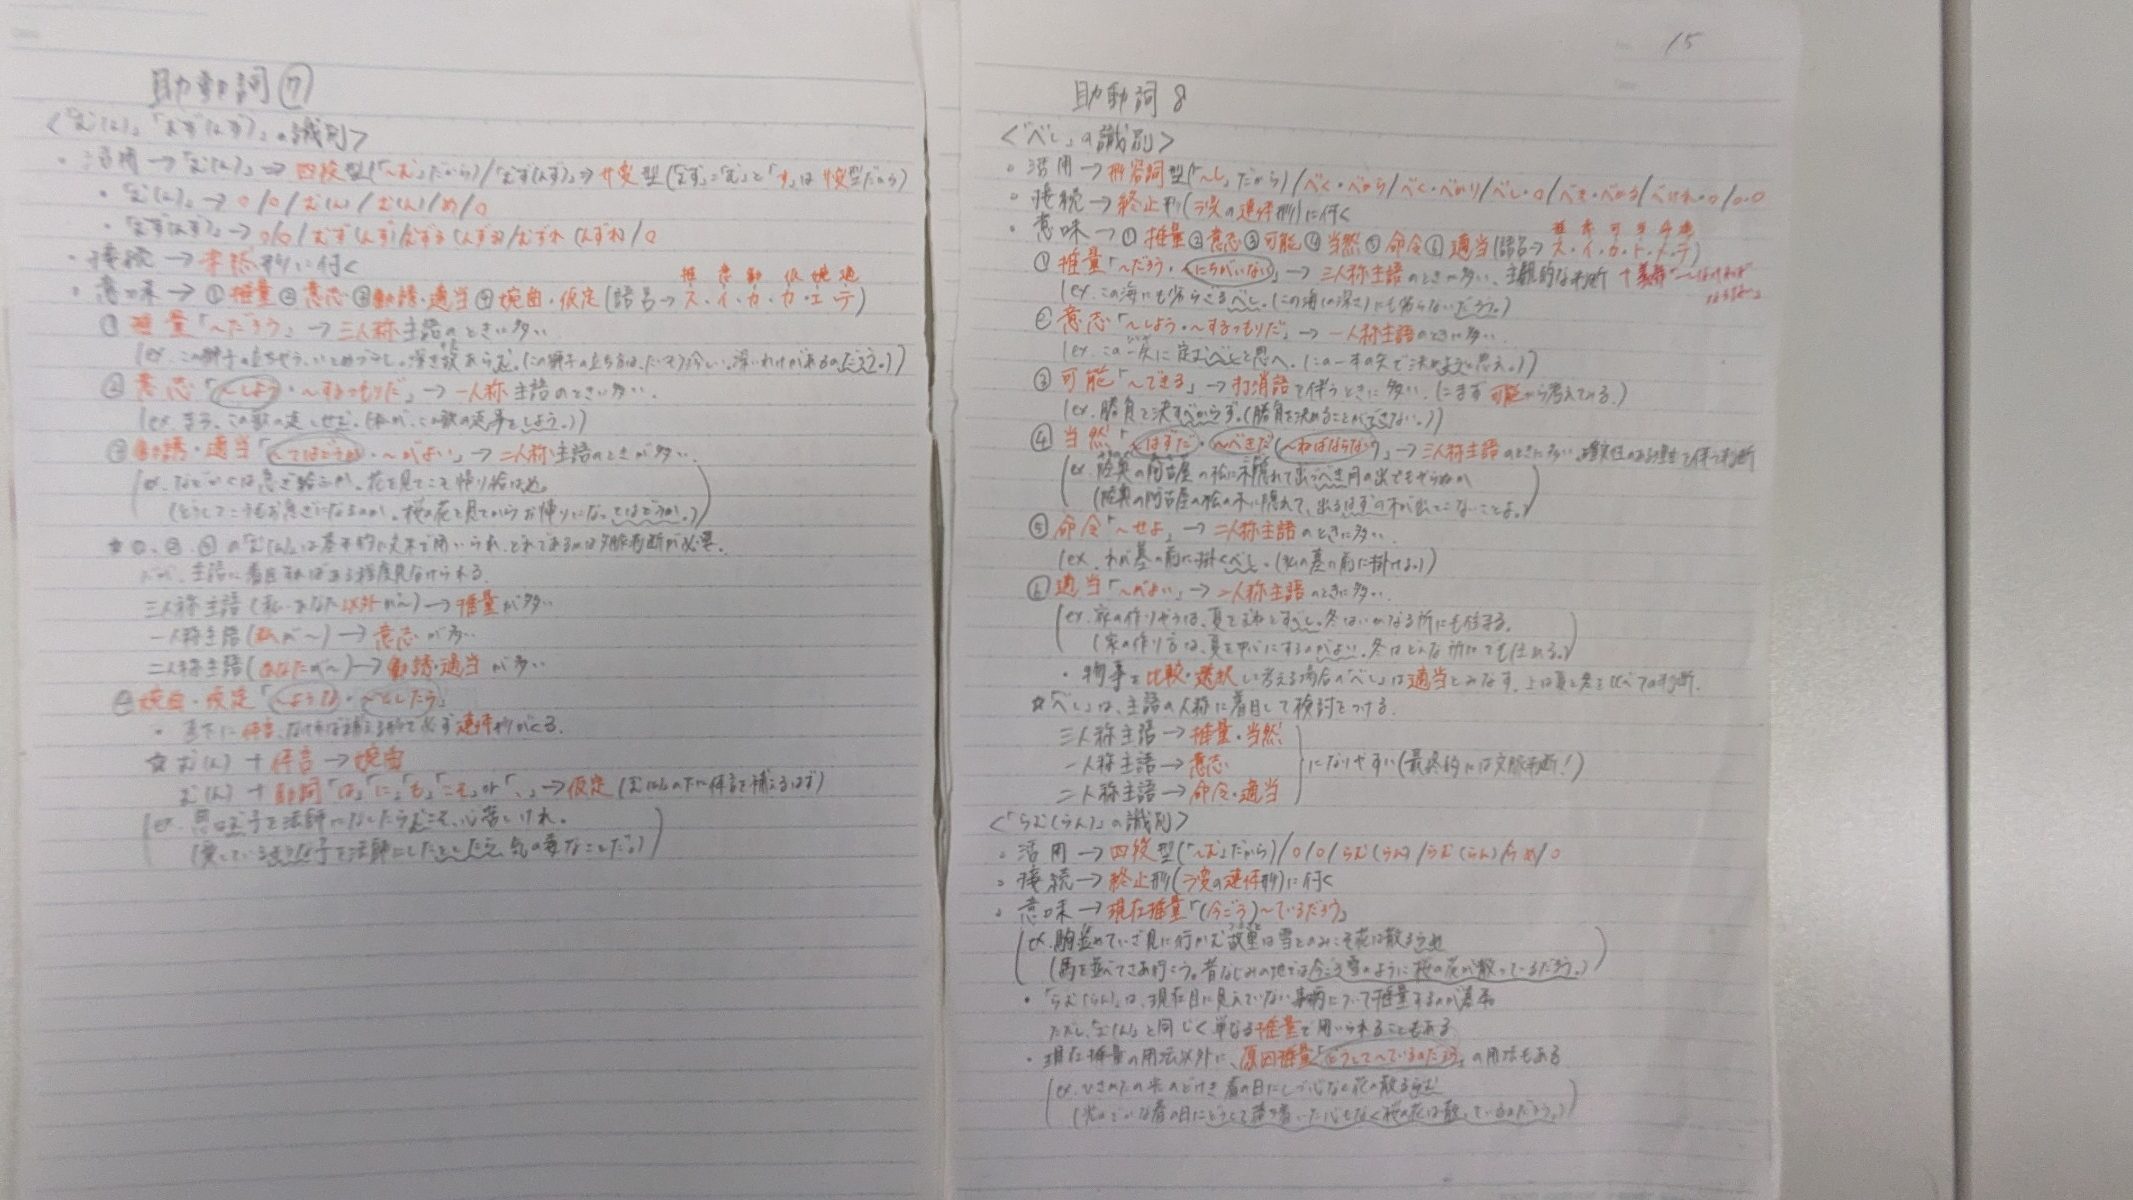 助動詞⑦
<「む(ん)」「むず(んず)」の識別>
・活用→「む(ん)」→四段型(「〜む」だから)/「むず(んず)」→サ変型(「むず」=「む」と「す」はサ変型だから)
・「む(ん)」→○/○/む(ん)/む(ん)/め/○
・「むず(んず)」→○/○/むず(んず)/むずる(んずる)/むずれ(んずれ)/○
・接続→未然形に付く
推 意 勧 仮 婉 適
・意味→①推量②意志③勧誘・適当④婉曲・仮定(語呂→ス・イ・カ・カ・エ・テ)
①推量「〜だろう」→三人称主語のときに多い
(ex.この獅子の立ちやう、いとめづらし。深き故あらむ。(この獅子の立ち方は、たいそう珍しい。深いわけがあるのだろう。))
②意志「〜しよう・〜するつもりだ」→一人称主語のときに多い.
(ex.まろ、この歌の返しせむ。(私が、この歌の返事をしよう。))
③勧誘・適当「〜てはどうか・〜がよい」→二人称主語のときが多い.
(ex.などかくは急ぎ給ふか。花を見てこそ帰り給はめ。
(どうしてこうもお急ぎになるのか。桜の花を見てからお帰りになってはどうか。))
☆①、②、③の「む(ん)」は基本的に文末で用いられ、どれであるかは文脈判断が必要。
だが、主語に着目すればある程度見分けられる.
三人称主語(私・あなた以外が〜)→推量が多い
一人称主語(私が〜)→意志が多い
二人称主語(あなたが〜)→勧誘・適当が多い
④婉曲・仮定「〜ような・〜としたら」
・真下に体言、なければ補える形で必ず連体形がくる.
☆む(ん)+体言→婉曲
む(ん)+助詞「は」「に」「も」「こそ」か「、」→仮定(む(ん)の下に体言を補えるはず)
(ex.思はむ子を法師になしたらむこそ、心苦しけれ。
(愛しているような子を法師にしたとしたら、気の毒なことだ。))
15
助動詞8
<「べし」の識別>
・活用→形容詞型(「〜し」だから)/べく・べから/べく・べかり/べし・○/べき・べかる/べけれ・○/○・○
・接続→終止形(ラ変の連体形)に付く
推 意 可 当 命 適
・意味→①推量②意志③可能④当然⑤命令⑥適当(語呂→ス・イ・カ・ト・メ・テ)
①推量「〜だろう・〜にちがいない」→三人称主語のときが多い、主観的な判断 +義務「〜なければならない」
(ex.この海にも劣らざるべし。(この海(の深さ)にも劣らないだろう。))
②意志「〜しよう・〜するつもりだ」→一人称主語のときに多い.
(ex.この一矢に定むべしと思へ。(この一本の矢で決めようと思え。))
③可能「〜できる」→打消語を伴うときに多い.(にまず可能から考えてみる.)
(ex.勝負を決すべからず.(勝負を決めることができない.))
④当然「〜はずだ・〜べきだ(〜ねばならない)」→三人称主語のときに多い、確実性のある理を伴う判断
(ex.陸奥の阿古屋の松に木隠れて出づべき月の出でもやらぬか
(陸奥の阿古屋の松の木に隠れて、出るはずの月が出てこないことよ。))
⑤命令「〜せよ」→二人称主語のときに多い.
(ex.わが墓の前に掛くべし.(私の墓の前に掛けよ。))
⑥適当「〜がよい」→二人称主語のときに多い.
(ex.家の作りやうは、夏をむねとすべし。冬はいかなる所にも住まる.
(家の作り方は、夏を中心にするのがよい。冬はどんな所にでも住める.))
・物事を比較・選択して考える場合の「べし」は適当とみなす.上は夏と冬を比べての判断.
☆「べし」は、主語の人称に着目して検討をつける.
三人称主語→推量・当然
一人称主語→意志 になりやすい(最終的には文脈判断!)
二人称主語→命令・適当
<「らむ(らん)」の識別>
・活用→四段型(「〜む」だから)/○/○/らむ(らん)/らむ(らん)/らめ/○
・接続→終止形(ラ変の連体形)に付く
・意味→現在推量「(今ごろ)〜ているだろう」
(ex.駒並めていざ見に行かむ故里は雪とのみこそ花は散るらめ
(馬を並べてさあ行こう。昔なじみの地では今ごろ雪のように桜の花が散っているだろう。))
・「らむ(らん)」は、現在目に見えていない事柄について推量するのが基本
ただし、「む(ん)」と同じく単なる推量で用いられることもある
・現在推量の用法以外に、原因推量「どうして〜ているのだろう」の用法もある
(ex.ひさかたの光のどけき春の日にしづ心なく花の散るらむ
(光のどかな春の日にどうして落ち着いた心もなく桜の花は散っているのだろう。))